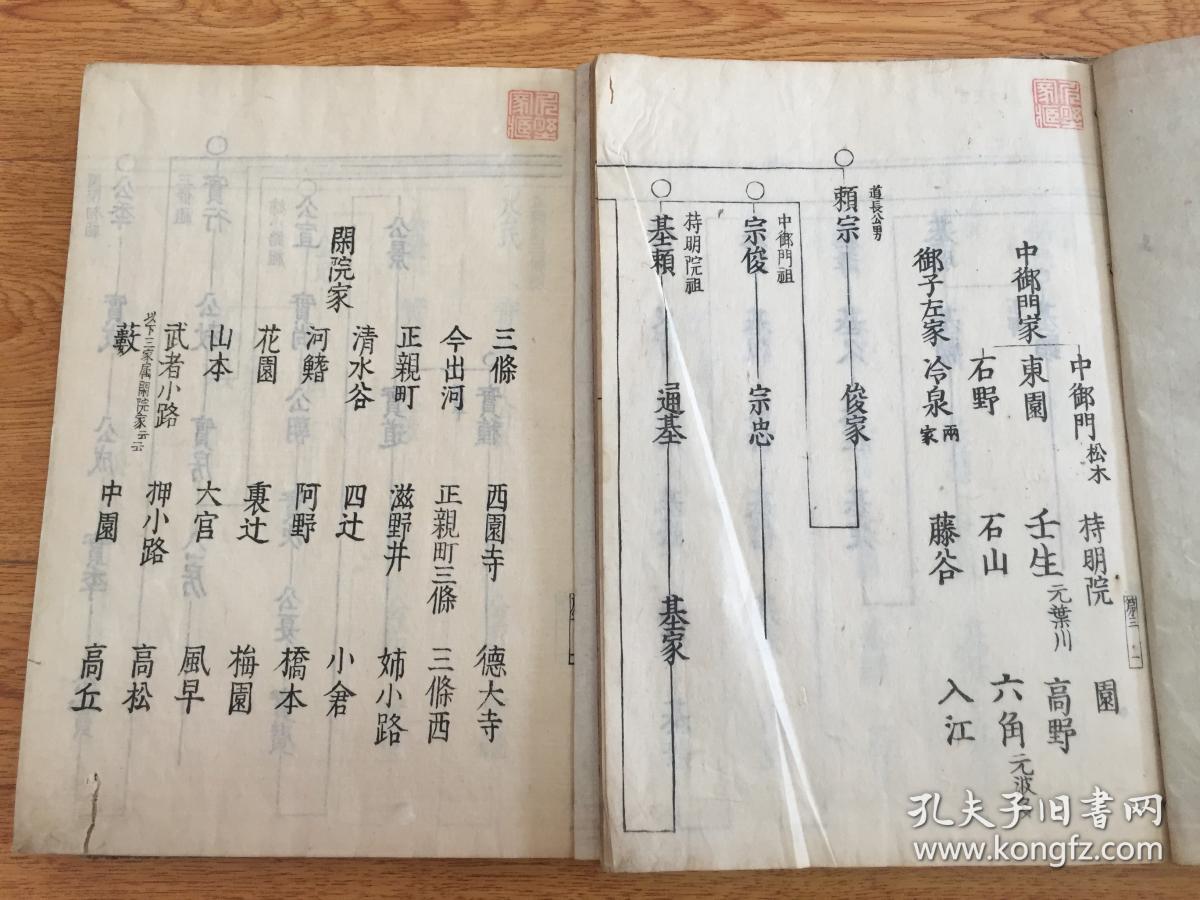 中御門 松木
持明院
園
中御門家
東園
壬生 元葉川
高野
石野
石山
六角 元波多
御子左家
冷泉 兩家
藤谷
入江
道長公男
頼宗
俊家
中御門祖
宗俊
宗忠
持明院祖
基頼
通基
基家
閑院家
三條
西園寺
德大寺
今出河
正親町三條
三條西
正親町
滋野井
姉小路
清水谷
四辻
小倉
河鰭
阿野
橋本
花園
裏辻
梅園
山本
大宮
風早
武者小路
押小路
高松
以下三家属閑院家云云
藪
中園
高丘
孔夫子旧书网
www.kongfz.com